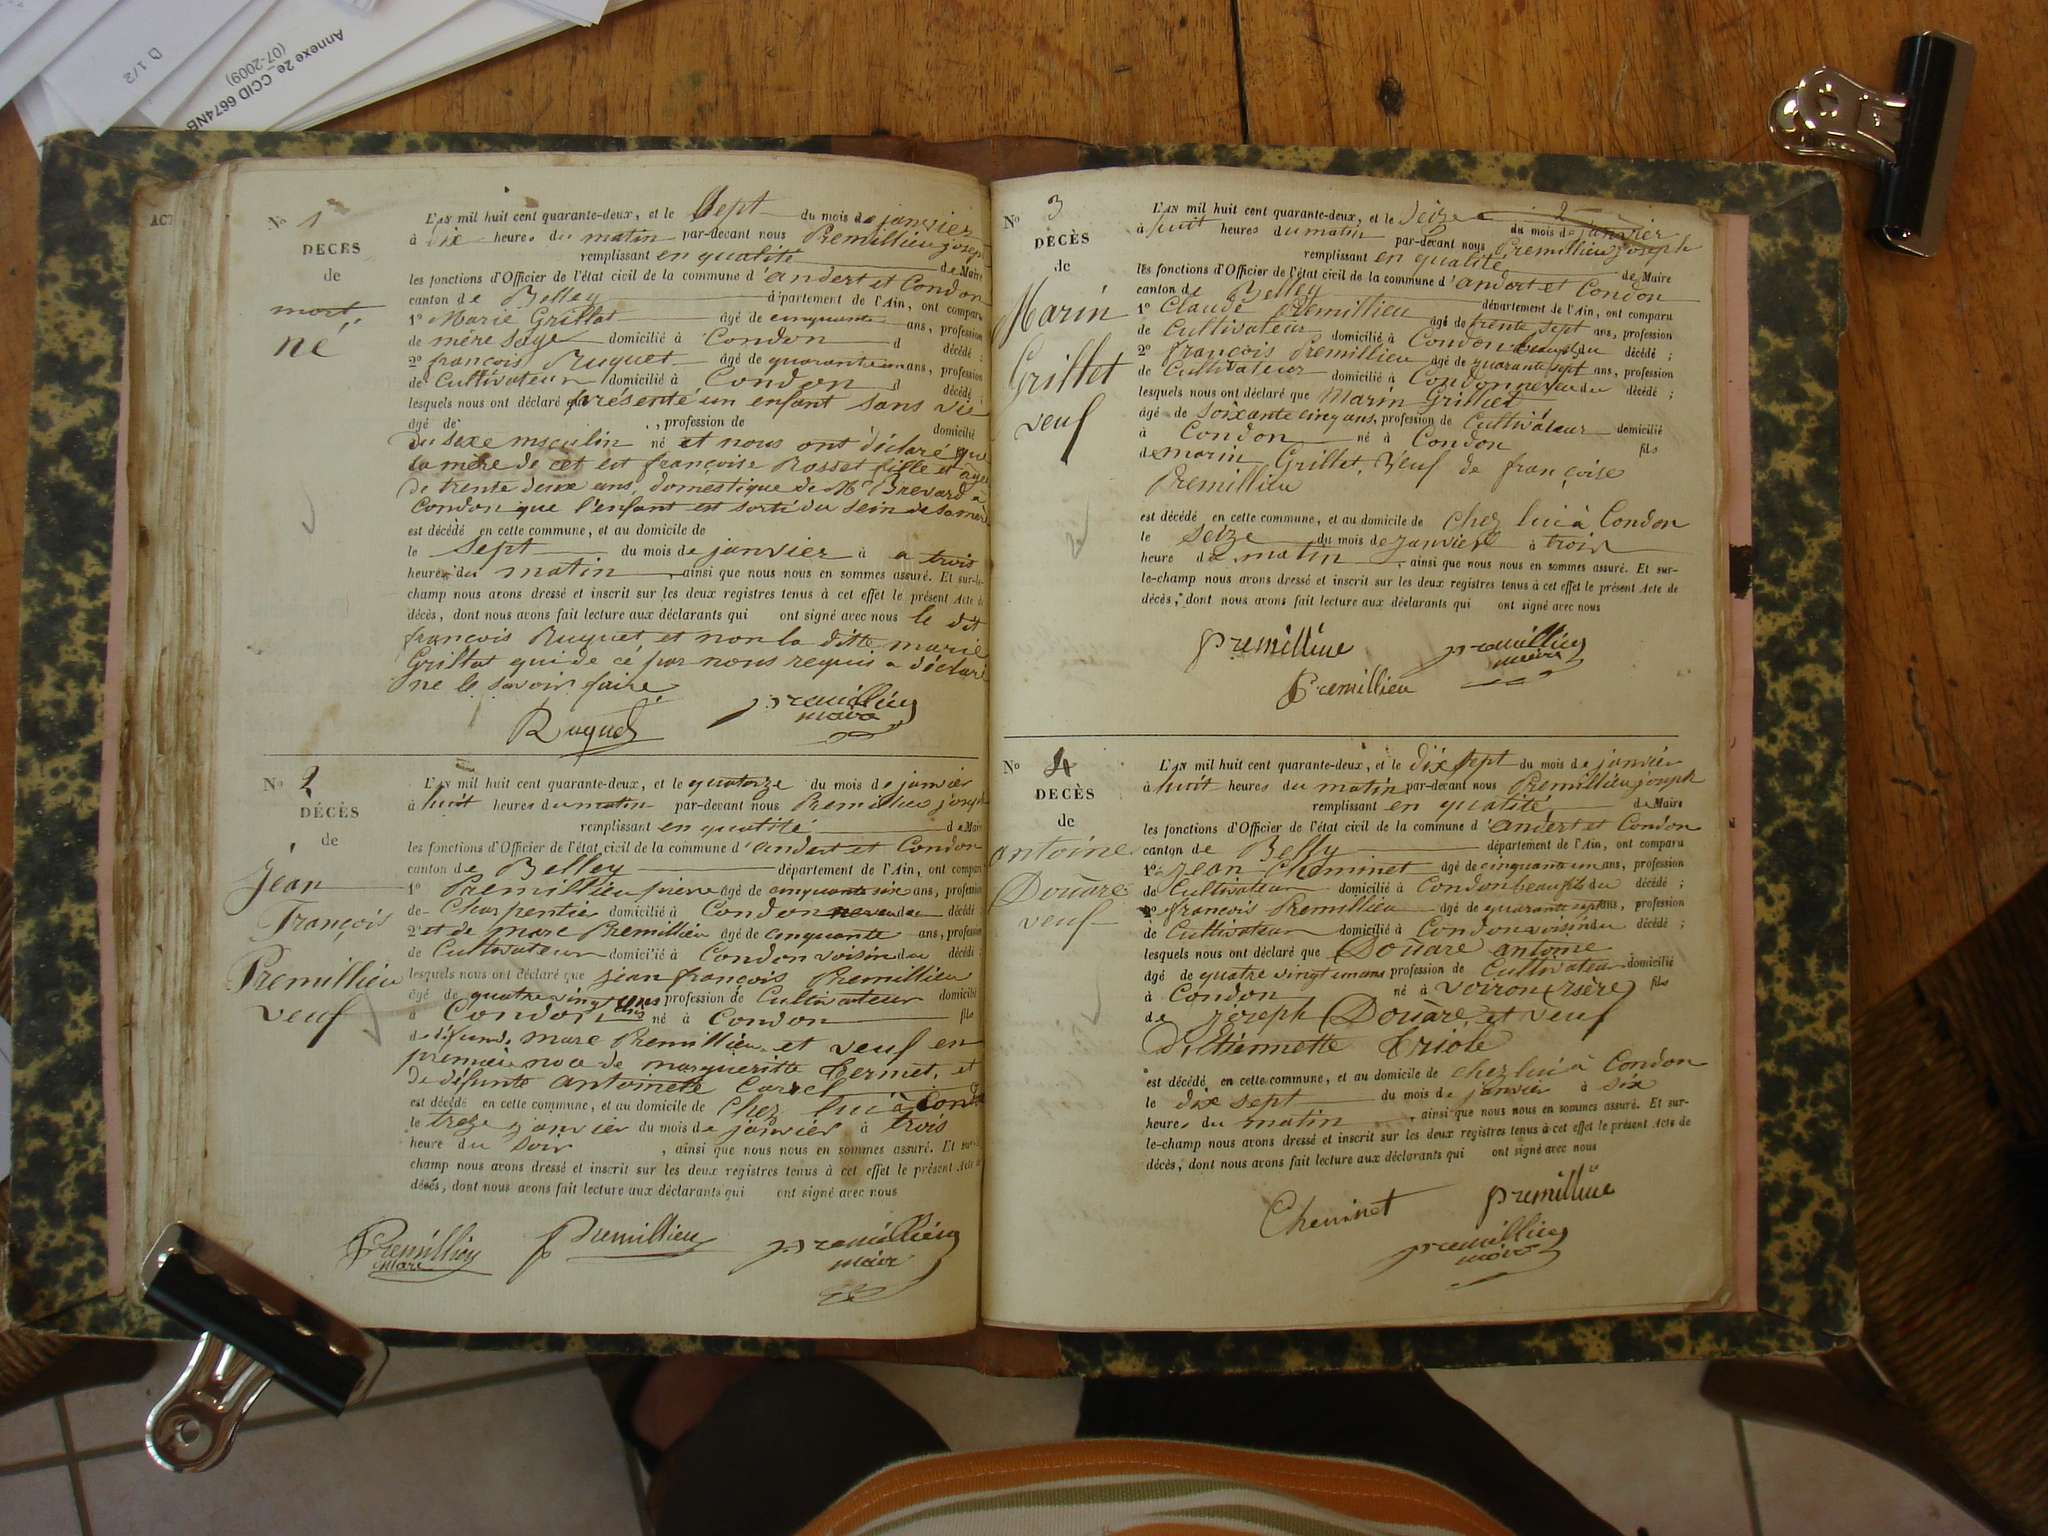 Annexe 2e_CCID 6674NB
(07-2009)
D 1/2
ACT
N° 1
DECES
de
mort
né
L'AN mil huit cent quarante-deux, et le Sept du mois de janvier
à dix heures du matin par-devant nous Premillieu joseph
remplissant en qualité de Maire
les fonctions d'Officier de l'état civil de la commune d'andert et Condon
canton de Belley département de l'Ain, ont comparu
1° Marie Grillat âgé de cinquante ans, profession
de mère sage domicilié à Condon d décédé ;
2° françois Ruguet âgé de quarante un ans, profession
de Cultivateur domicilié à Condon d décédé ;
lesquels nous ont déclaré que présenté un enfant sans vie
âgé de , profession de domicilié
du sexe msculin né et nous ont déclaré que
la mère de cet est françoise Rosset fille et âgé
de trente deux ans domestique de Mr Brevard à
Condon que l'enfant est sorti du sein de sa mère
est décédé en cette commune, et au domicile de
le Sept du mois de janvier à a trois
heures du matin , ainsi que nous nous en sommes assuré. Et sur-le-
champ nous avons dressé et inscrit sur les deux registres tenus à cet effet le présent Acte de
décès, dont nous avons fait lecture aux déclarants qui ont signé avec nous le dit
françois Ruguet et non la ditte marie
Grillat qui de cé par nous requis a déclaré
ne le savoir faire
Ruguet premillieu
maire
N° 2
DÉCÈS
de
Jéan
François
Premillieu
veuf
L'AN mil huit cent quarante-deux, et le quatorze du mois de janvier
à huit heures du matin par-devant nous Premillieu joseph
remplissant en qualité de Maire
les fonctions d'Officier de l'état civil de la commune d'andert et Condon
canton de Belley département de l'Ain, ont comparu
1° Premillieu pierre âgé de cinquante six ans, profession
de Charpentie domicilié à Condon neveu du décédé
2° et de marc Premillieu âgé de cinquante ans, profession
de Cultivateur domicilié à Condon voisin du décédé ;
lesquels nous ont déclaré que jean françois Premillieu
âgé de quatre vingt ans profession de Cultivateur domicilié
à Condon né à Condon fils
de défunds marc Premillieu et veuf en
premiér noce de margueritte Termet, et
de défunte antoinete Carrel
est décédé en cette commune, et au domicile de Chez lui à Condon
le treze janvier du mois de janviér à trois
heure du soir , ainsi que nous nous en sommes assuré. Et sur-le-
champ nous avons dressé et inscrit sur les deux registres tenus à cet effet le présent Acte de
décès, dont nous avons fait lecture aux déclarants qui ont signé avec nous
Premillieu
marc
Premillieu premillieu
maire
N° 3
DÉCÈS
de
Marin
Grillet
veuf
L'AN mil huit cent quarante-deux, et le Seize du mois de janvier
à huit heures du matin par-devant nous Premillieu joseph
remplissant en qualité de Maire
les fonctions d'Officier de l'état civil de la commune d'andert et Condon
canton de Belley département de l'Ain, ont comparu
1° Claude Premillieu âgé de trente sept ans, profession
de Cultivateur domicilié à Condon beaufils du décédé ;
2° françois Premillieu âgé de quarante sept ans, profession
de Cultivateur domicilié à Condon neveu du décédé ;
lesquels nous ont déclaré que Marin Grillet
âgé de soixante cinq ans, profession de Cultivateur domicilié
à Condon né à Condon fils
de marin Grillet veuf de françoise
Premillieu
est décédé en cette commune, et au domicile de Chez lui à Condon
le Seize du mois de janvier à trois
heure du matin , ainsi que nous nous en sommes assuré. Et sur-
le-champ nous avons dressé et inscrit sur les deux registres tenus à cet effet le présent Acte de
décès, dont nous avons fait lecture aux déclarants qui ont signé avec nous
premilliue premillieu
maire
Premillieu
N° 4
DECÈS
de
antoine
Douare
veuf
L'AN mil huit cent quarante-deux, et le dix sept du mois de janviér
à huit heures du matin par-devant nous Premillieu joseph
remplissant en qualité de Maire
les fonctions d'Officier de l'état civil de la commune d'andert et Condon
canton de Belley département de l'Ain, ont comparu
1° jean Cheminet âgé de cinquante un ans, profession
de Cultivateur domicilié à Condon beaufils du décédé ;
2° françois Premillieu âgé de quarante sept ans, profession
de Cultivateur domicilié à Condon voisin du décédé ;
lesquels nous ont déclaré que Douare antoine
âgé de quatre vingt un ans profession de Cultivateur domicilié
à Condon né à Voiron (isère) fils
de joseph Douare et veuf
d'Etiennette Triole
est décédé en cette commune, et au domicile de chez lui à Condon
le dix sept du mois de janvier à six
heures du matin , ainsi que nous nous en sommes assuré. Et sur-
le-champ nous avons dressé et inscrit sur les deux registres tenus à cet effet le présent Acte de
décès, dont nous avons fait lecture aux déclarants qui ont signé avec nous
Cheminet premilliue
premillieu
maire